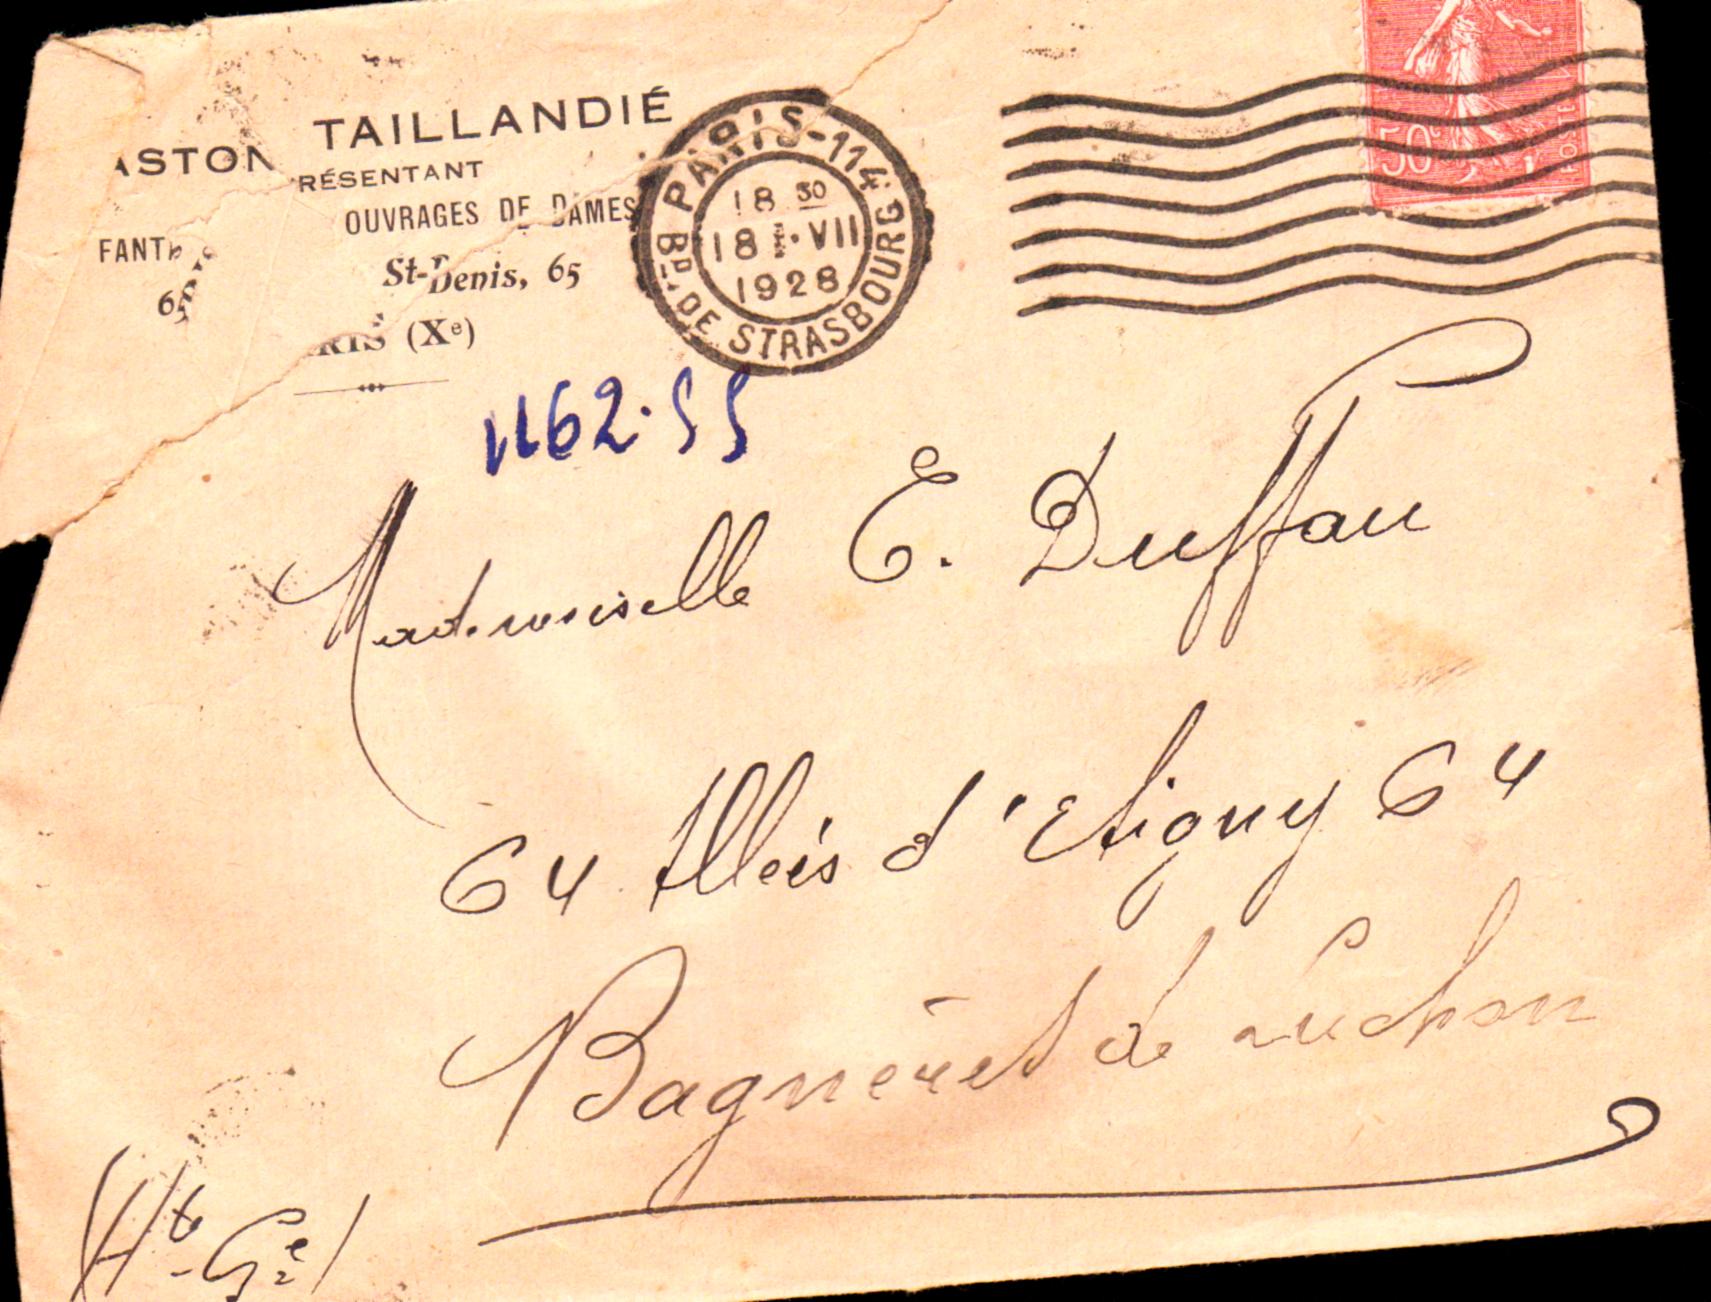 ASTON TAILLANDIÉ
RÉSENTANT
OUVRAGES DE DAMES
FANT
65
St-Denis, 65
RIS (Xᵉ)
PARIS-114
18 30
18 VII
1928
Bᴰ DE STRASBOURG
50ᶜ
POSTE
1162.55
Mademoiselle E. Duffau
64 Allées d'Etigny 64
Bagnères de Luchon
(Hᵗᵉ-Gⁿᵉ)